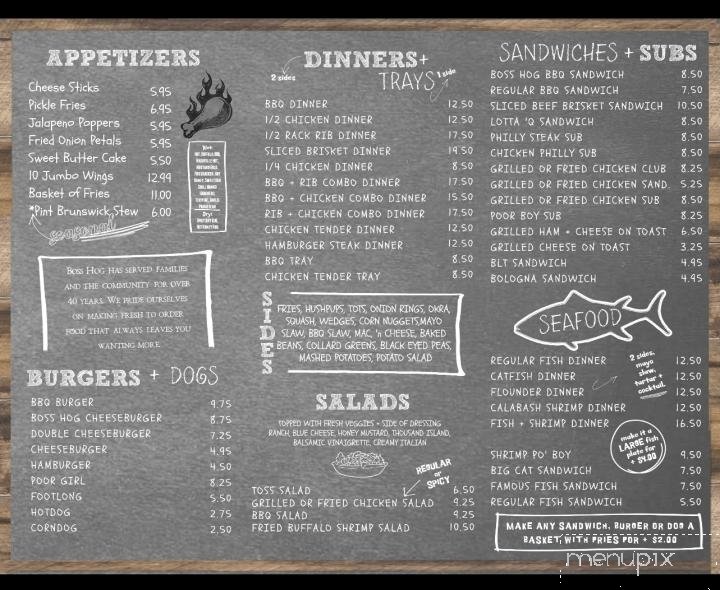 APPETIZERS
Cheese Sticks 5.95
Pickle Fries 6.95
Jalapeno Poppers 5.95
Fried Onion Petals 5.95
Sweet Butter Cake 5.50
10 Jumbo Wings 12.99
Basket of Fries 11.00
*Pint Brunswick Stew 6.00
seasonal
Boss Hog has served families
and the community for over
40 years. We pride ourselves
on making fresh to order
food that always leaves you
wanting more.
BURGERS + DOGS
BBQ BURGER 9.75
BOSS HOG CHEESEBURGER 8.75
DOUBLE CHEESEBURGER 7.25
CHEESEBURGER 4.95
HAMBURGER 4.50
POOR GIRL 8.25
FOOTLONG 5.50
HOTDOG 2.75
CORNDOG 2.50
DINNERS+
2 sides
TRAYS 1 side
BBQ DINNER 12.50
1/2 CHICKEN DINNER 12.50
1/2 RACK RIB DINNER 17.50
SLICED BRISKET DINNER 19.50
1/4 CHICKEN DINNER 8.50
BBQ + RIB COMBO DINNER 17.50
BBQ + CHICKEN COMBO DINNER 15.50
RIB + CHICKEN COMBO DINNER 17.50
CHICKEN TENDER DINNER 12.50
HAMBURGER STEAK DINNER 12.50
BBQ TRAY 8.50
CHICKEN TENDER TRAY 8.50
SIDES
FRIES, HUSHPUPS, TOTS, ONION RINGS, OKRA,
SQUASH, WEDGES, CORN NUGGETS,MAYO
SLAW, BBQ SLAW, MAC, 'n CHEESE, BAKED
BEANS, COLLARD GREENS, BLACK EYED PEAS,
MASHED POTATOES, POTATO SALAD
SALADS
TOPPED WITH FRESH VEGGIES + SIDE OF DRESSING
RANCH, BLUE CHEESE, HONEY MUSTARD, THOUSAND ISLAND,
BALSAMIC VINAIGRETTE, CREAMY ITALIAN
REGULAR
or
SPICY
TOSS SALAD 6.50
GRILLED OR FRIED CHICKEN SALAD 9.25
BBQ SALAD 9.25
FRIED BUFFALO SHRIMP SALAD 10.50
SANDWICHES + SUBS
BOSS HOG BBQ SANDWICH 8.50
REGULAR BBQ SANDWICH 7.50
SLICED BEEF BRISKET SANDWICH 10.50
LOTTA 'Q SANDWICH 8.50
PHILLY STEAK SUB 8.50
CHICKEN PHILLY SUB 8.50
GRILLED OR FRIED CHICKEN CLUB 8.25
GRILLED OR FRIED CHICKEN SAND. 5.25
GRILLED OR FRIED CHICKEN SUB 8.50
POOR BOY SUB 8.25
GRILLED HAM + CHEESE ON TOAST 6.50
GRILLED CHEESE ON TOAST 3.25
BLT SANDWICH 4.95
BOLOGNA SANDWICH 4.95
SEAFOOD
2 sides,
mayo
slaw,
tartar +
cocktail.
REGULAR FISH DINNER 12.50
CATFISH DINNER 12.50
FLOUNDER DINNER 12.50
CALABASH SHRIMP DINNER 12.50
FISH + SHRIMP DINNER 16.50
make it a
LARGE fish
plate for
+ $4.00
SHRIMP PO' BOY 9.50
BIG CAT SANDWICH 7.50
FAMOUS FISH SANDWICH 7.50
REGULAR FISH SANDWICH 5.50
MAKE ANY SANDWICH, BURGER OR DOG A
BASKET, WITH FRIES FOR + $2.00
menupix